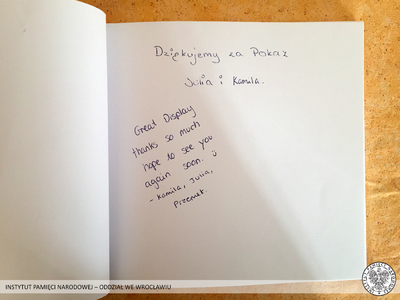 Dziękujemy za Pokaz
Julia i Kamila.
Great Display
thanks so much
hope to see you
again soon. :)
- Kamila, Julia,
Przemek.
INSTYTUT PAMIĘCI NARODOWEJ – ODDZIAŁ WE WROCŁAWIU